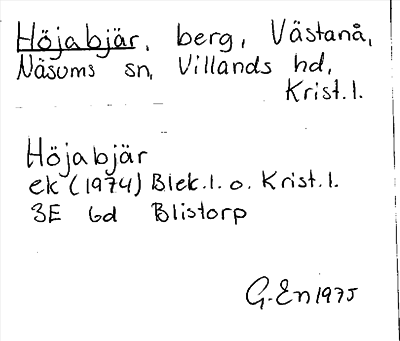 Höjabjär, berg, Västanå,
Näsums sn, Villands hd,
Krist.l.
Höjabjär
ek (1974) Blek.l. o. Krist.l.
3E 6d Blistorp
G.En 1975